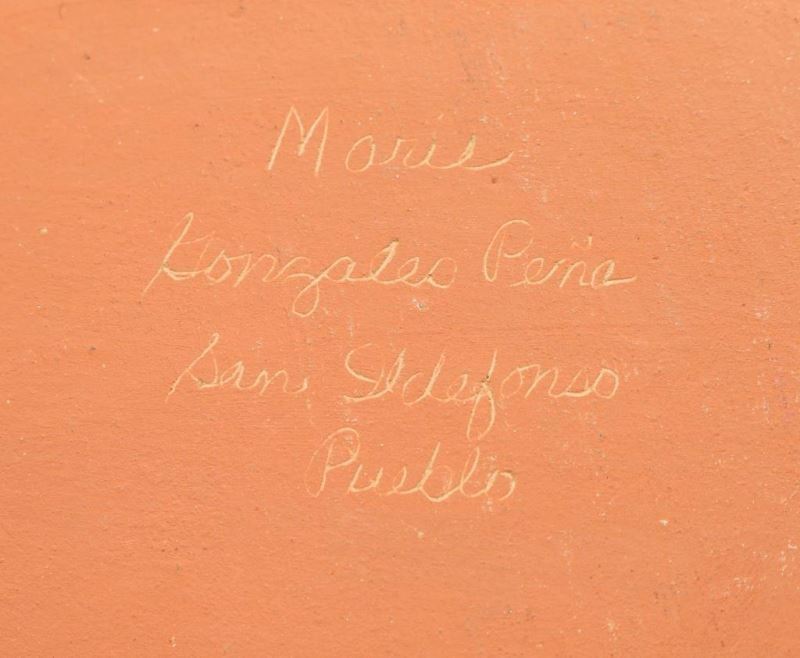 Marie
Gonzales Peña
San Ildefonso
Pueblo